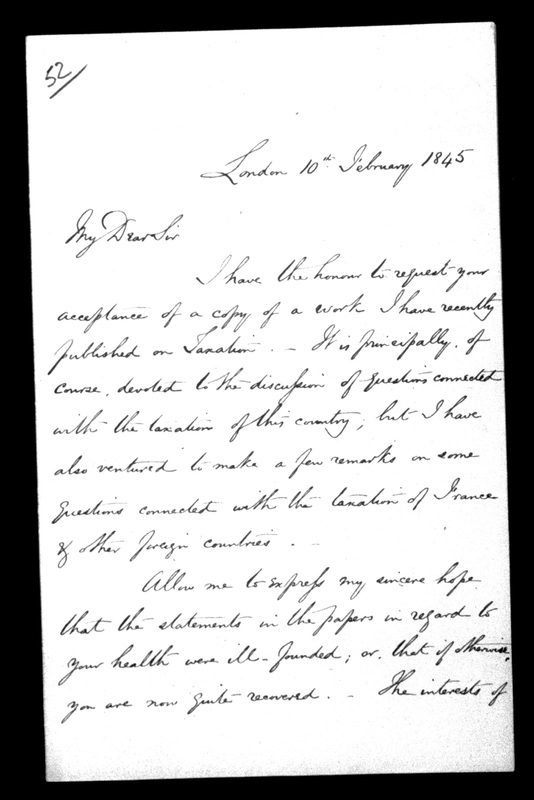 52/
London 10th February 1845
My Dear Sir
I have the honour to request your
acceptance of a copy of a work I have recently
published on Taxation. — It is principally, of
course, devoted to the discussion of questions connected
with the taxation of this country; but I have
also ventured to make a few remarks on some
questions connected with the taxation of France
& other foreign countries. —
Allow me to express my sincere hope
that the statements in the papers in regard to
your health were ill-founded; or, that if otherwise,
you are now quite recovered. — The interests of